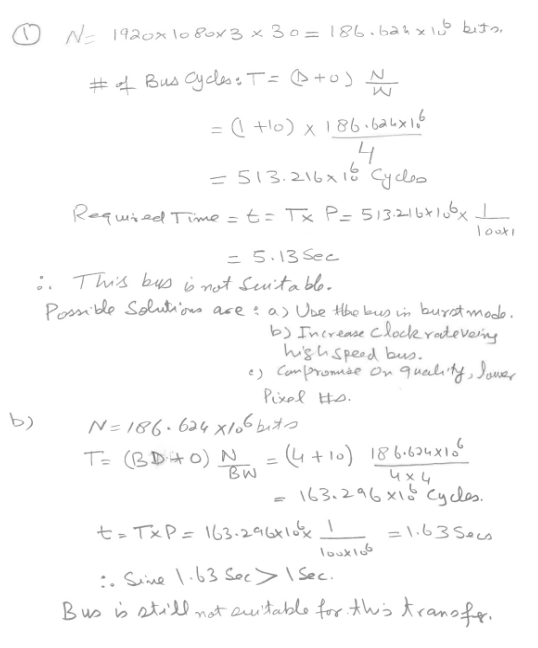 ① N = 1920x1080x3 x 30 = 186.624 x 10⁶ bits.
# of Bus Cycles: T = (D+O) N/W
= (1+10) x 186.624x10⁶/4
= 513.216x10⁶ Cycles
Required Time = t = T x P = 513.216x10⁶x 1/100x1
= 5.13 Sec
∴ This bus is not suitable.
Possible Solutions are : a) Use the bus in burst mode.
b) Increase clock rate
high speed bus.
c) Compromise on quality, lower
Pixel #s.
b) N = 186.624 x10⁶ bits
T = (BD+O) N/BW = (4+10) 186.624x10⁶/4x4
= 163.296x10⁶ Cycles.
t = TxP = 163.296x10⁶x 1/100x10⁶ = 1.63 Secs
∴ Sine 1.63 Sec > 1 Sec.
Bus is still not suitable for this transfer.